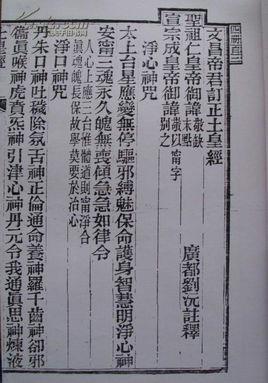 文昌帝君訂正土皇經
聖祖仁皇帝御諱敬缺末點 廣都劉沅註釋
宣宗成皇帝御諱敬以甯字別之
淨心神咒
太上台星應變無停驅邪縛魅保命護身智慧明淨心神
安甯三魂永久魄無喪傾急急如律令
人心上應三台惟體道則甯淨合
眞魂魄長保故學莫要於治心
淨口神咒
丹朱口神吐穢除氛舌神正倫通命養神羅千齒神卻邪
衞眞喉神虎賁炁神引津心神丹元令我通眞思神煉液